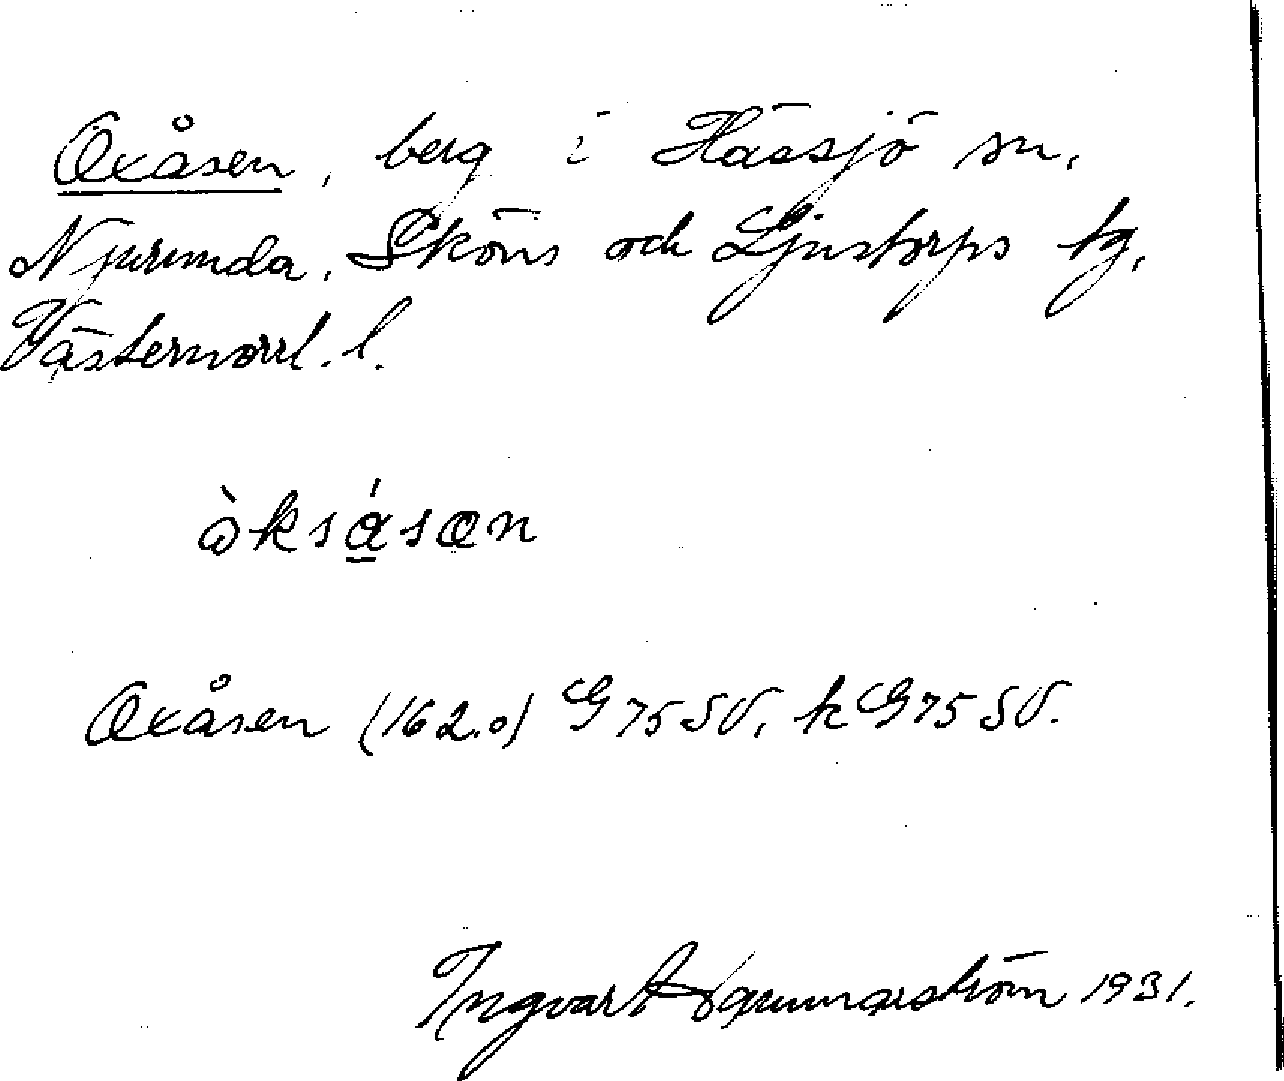 Oxåsen, berg i Hässjö sn,
Njurunda, Sköns och Ljustorps tg,
Västernorrl. l.
Oxåsen (162.0) G 75 SV, k G 75 SV.
Ingvar 1931.